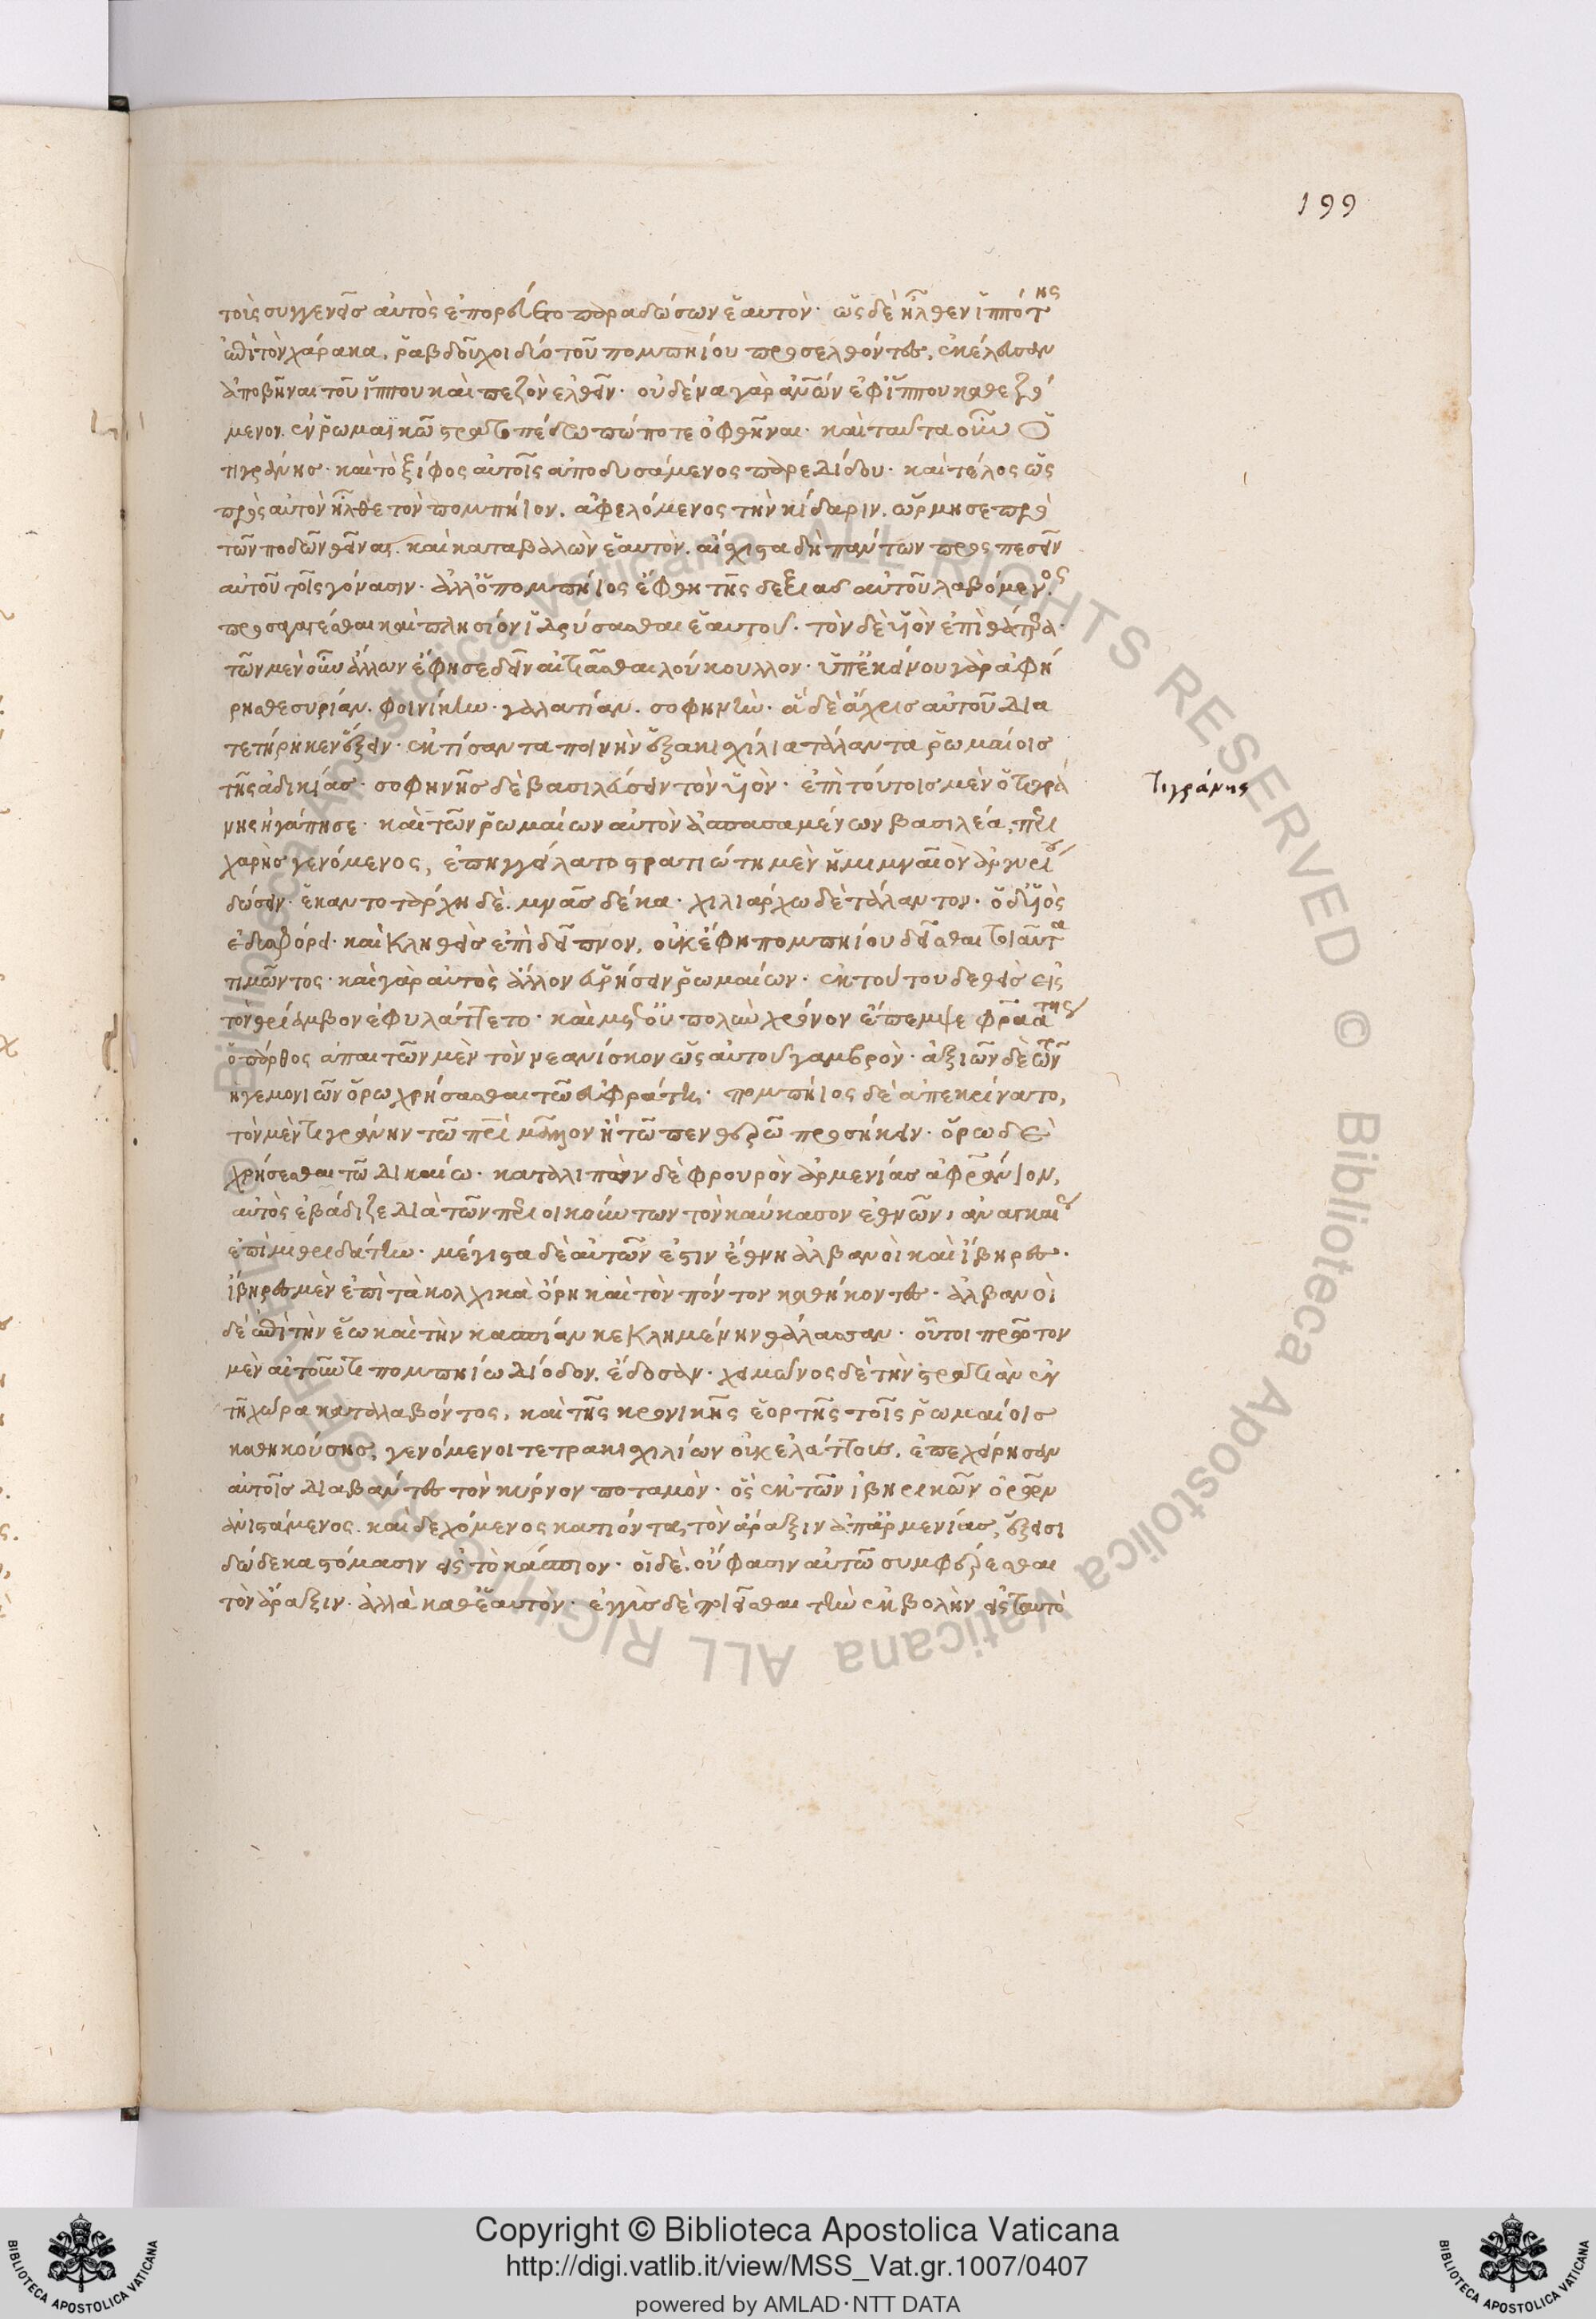 199
τοὺς συγγενεῖς αὐτὸς ἐπορεύετο παραδώσων ἑαυτόν. ὡς δὲ ἦλθεν ἱππότης
ἐπὶ τὸν χάρακα, ῥαβδοῦχοι δύο τοῦ πομπηίου προσελθόντες, ἐκέλευσαν
ἀποβῆναι τοῦ ἵππου καὶ πεζὸν ἐλθεῖν. οὐδένα γὰρ ἀνθρώπων ἐφ' ἵππου καθεζό
μενον. ἐν ῥωμαϊκῶ στρατοπέδω πώποτε ὀφθῆναι. καὶ ταῦτα οὖν ὁ
τιγράνης. καὶ τὸ ξίφος αὐτοῖς ἀποδυσάμενος παρεδίδου. καὶ τέλος ὡς
πρὸς αὐτὸν ἦλθε τὸν πομπήιον. ἀφελόμενος τὴν κίδαριν. ὥρμησε πρὸ
τῶν ποδῶν θεῖναι. καὶ καταβαλὼν ἑαυτὸν. αἴσχιστα δὴ πάντων προσπεσεῖν
αὐτοῦ τοῖς γόνασιν. ἀλλ' ὁ πομπήιος ἔφθη τῆς δεξιᾶς αὐτοῦ λαβόμενος
προσαγαγέσθαι καὶ πλησίον ἱδρύσασθαι ἑαυτοῦ. τὸν δὲ υἱὸν ἐπὶ θάτερα.
τῶν μὲν οὖν ἄλλων ἔφησε δεῖν αἰτιᾶσθαι λούκουλλον. ὑπ' ἐκείνου γὰρ ἀφῃ
ρῆσθε συρίαν. φοινίκην. γαλατίαν. σοφηνὴν. ἃ δὲ ἄχρις αὐτοῦ δια
τετήρηκεν ἕξειν. ἐκτίσαντα ποινὴν ἑξακισχίλια τάλαντα ῥωμαίοις
τῆς ἀδικίας. σοφηνῆς δὲ βασιλεύσειν τὸν υἱὸν. ἐπὶ τούτοις μὲν ὁ τιγρά
νης ἠγάπησε. καὶ τῶν ῥωμαίων αὐτὸν ἀσπασαμένων βασιλέα, περι
χαρὴς γενόμενος, ἐπηγγείλατο στρατιώτῃ μὲν ἡμιμναῖον ἀργυρίου
δώσειν. ἑκατοντάρχῃ δὲ. μνᾶς δέκα. χιλιάρχω δὲ τάλαντον. ὁ δ' υἱὸς
ἐδυσφόρει. καὶ κληθεὶς ἐπὶ δεῖπνον, οὐκ ἔφη πομπηίου δεῖσθαι τοιαῦτα
τιμῶντος. καὶ γὰρ αὐτὸς ἄλλον εὑρήσειν ῥωμαίων. ἐκ τούτου δεθεὶς εἰς
τὸν θρίαμβον ἐφυλάττετο. καὶ μετ' οὐ πολὺν χρόνον ἔπεμψε φραάτης
ὁ πάρθος ἀπαιτῶν μὲν τὸν νεανίσκον ὡς αὐτοῦ γαμβρὸν. ἀξιῶν δὲ τῶν
ἡγεμονιῶν ὅρω χρήσασθαι τῶ εὐφράτῃ. πομπήιος δὲ ἀπεκρίνατο,
τὸν μὲν τιγράνην τῶ πατρὶ μᾶλλον ἢ τῶ πενθερῶ προσήκειν. ὅρω δὲ
χρήσεσθαι τῶ δικαίω. καταλιπὼν δὲ φρουρὸν ἀρμενίας ἀφράνιον,
αὐτὸς ἐβάδιζε διὰ τῶν περιοικούντων τὸν καύκασον ἐθνῶν, ἀναγκαίως
ἐπὶ μιθριδάτην. μέγιστα δὲ αὐτῶν ἐστιν ἔθνη ἀλβανοὶ καὶ ἴβηρες.
ἴβηρες μὲν ἐπὶ τὰ κολχικὰ ὄρη καὶ τὸν πόντον καθήκοντες. ἀλβανοὶ
δὲ ἐπὶ τὴν ἕω καὶ τὴν κασπίαν κεκλημένην θάλασσαν. οὗτοι πρῶτον
μὲν αἰτοῦντι πομπηίω δίοδον. ἔδοσαν. χειμῶνος δὲ τὴν στρατιὰν ἐν
τῇ χώρα καταλαβόντος, καὶ τῆς κρονικῆς ἑορτῆς τοῖς ῥωμαίοις
καθηκούσης, γενόμενοι τετρακισχιλίων οὐκ ἐλάττους, ἐπεχείρησαν
αὐτοῖς διαβάντες τὸν κύρνον ποταμὸν. ὃς ἐκ τῶν ἰβηρικῶν ὀρῶν
ἀνιστάμενος. καὶ δεχόμενος κατιόντα τὸν ἀράξιν ἀπ' ἀρμενίας, ἐξίησι
δώδεκα στόμασιν εἰς τὸ κάσπιον. οἱ δὲ. οὔ φασιν αὐτῶ συμφέρεσθαι
τὸν ἀράξιν. ἀλλὰ καθ' ἑαυτὸν. ἐγγὺς δὲ ποιεῖσθαι τὴν ἐκβολὴν εἰς ταυτὸ
τιγράνης
Copyright © Biblioteca Apostolica Vaticana
http://digi.vatlib.it/view/MSS_Vat.gr.1007/0407
powered by AMLAD·NTT DATA
BIBLIOTECA APOSTOLICA VATICANA
BIBLIOTECA APOSTOLICA VATICANA